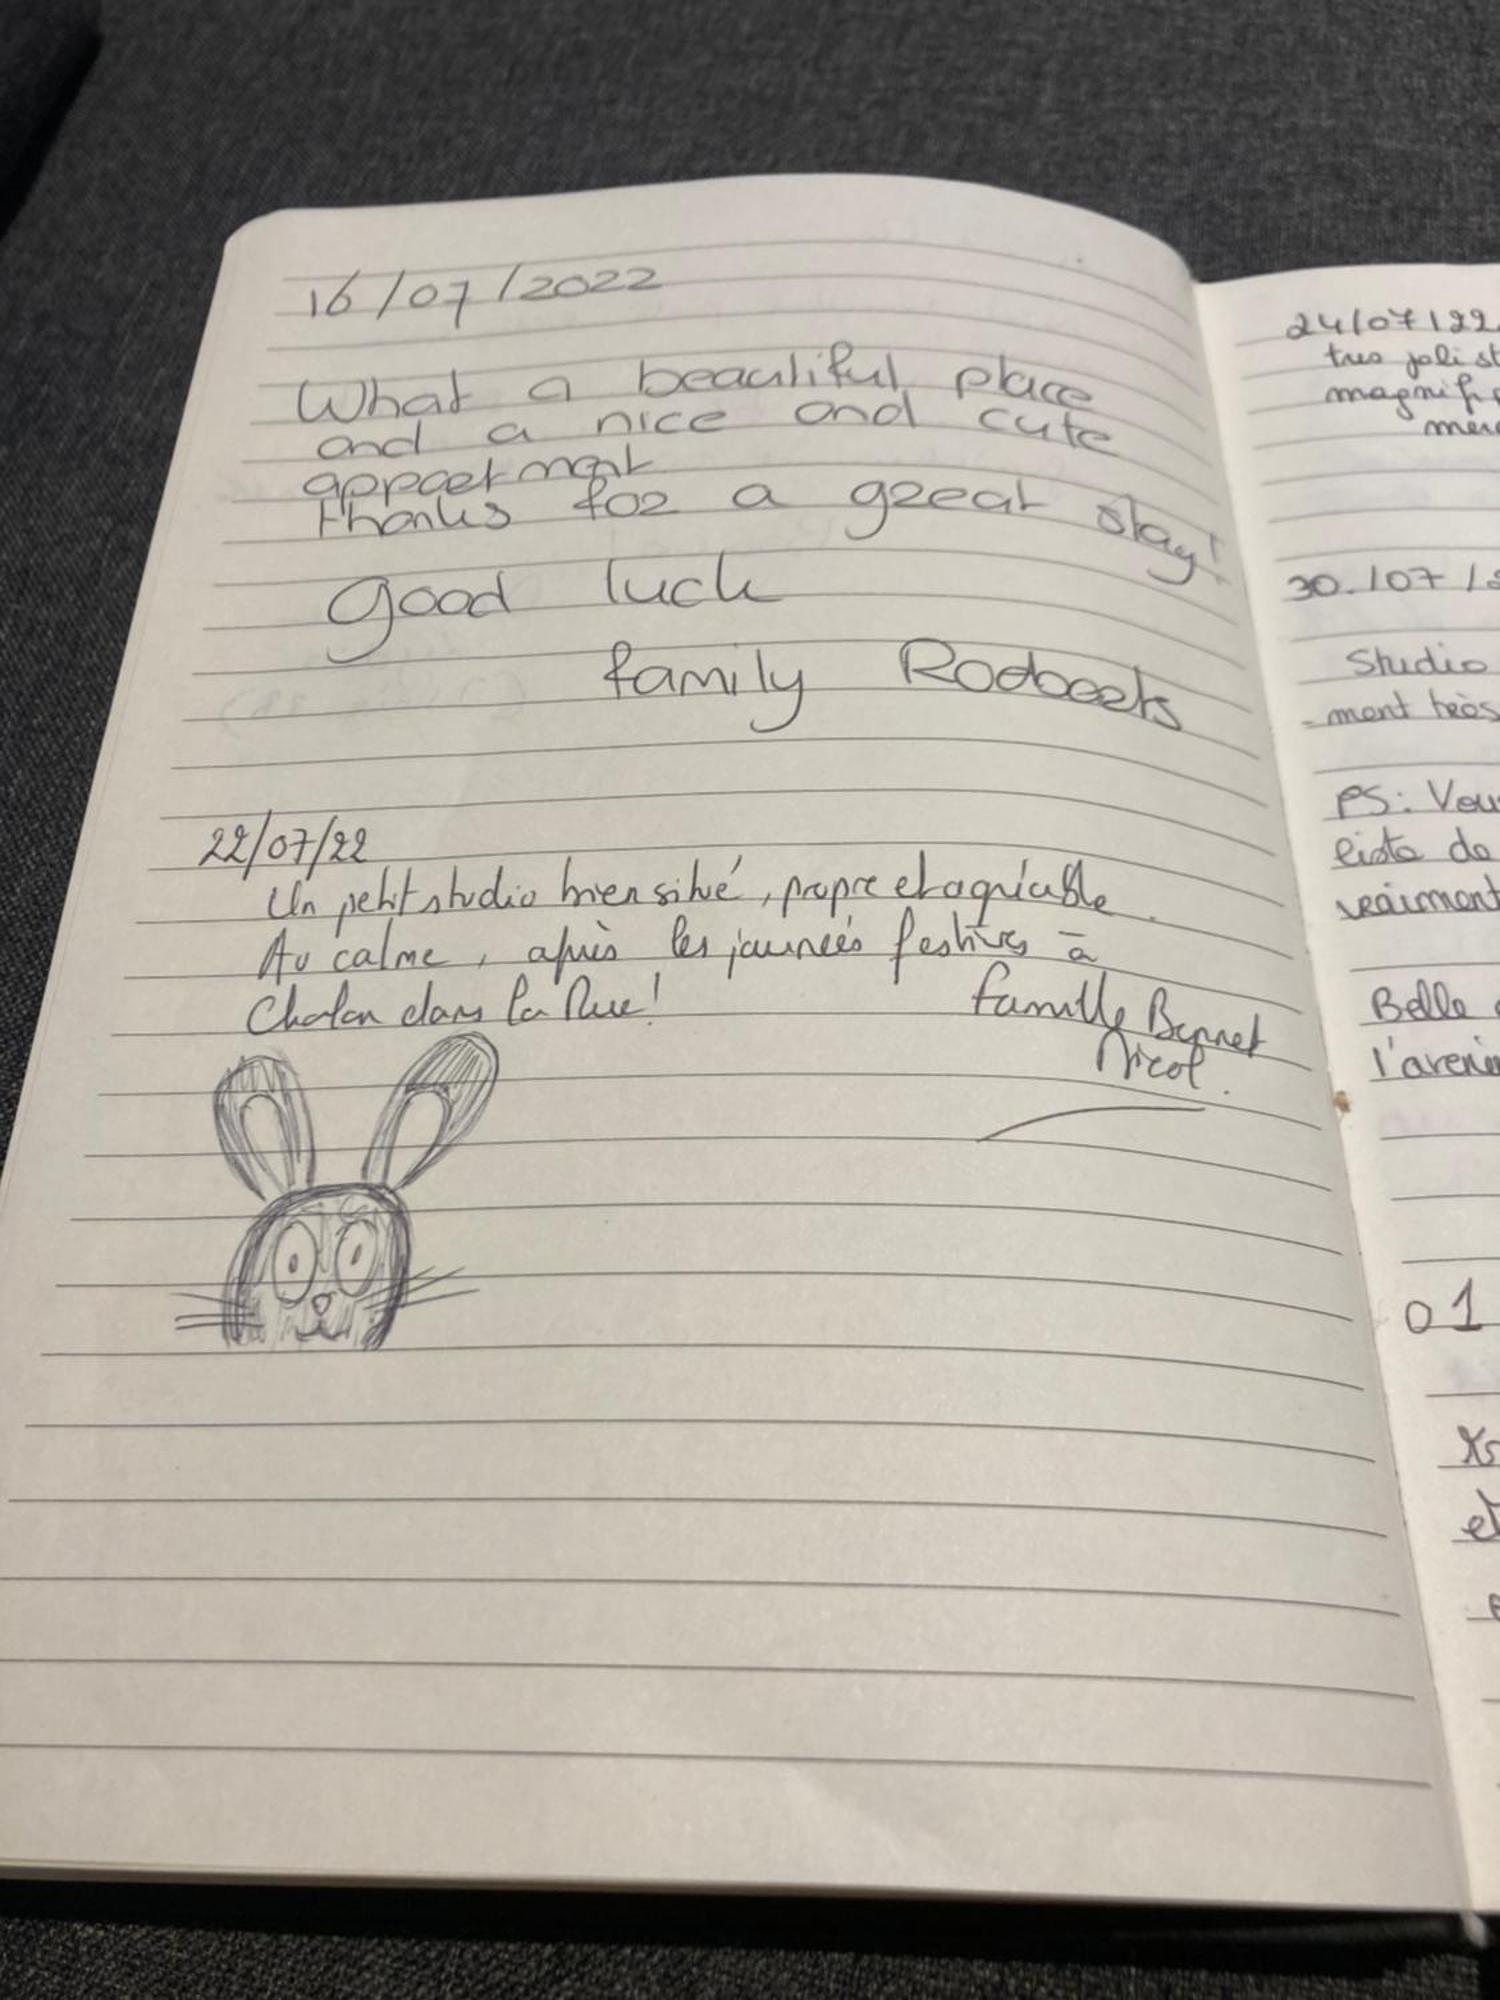 16/07/2022
What a beautiful place
and a nice and cute
appaetment
thanks for a great stay!
Good luck
family Rodoeets
22/07/22
Un petit studio bien situé, propre et agréable.
Au calme, après les journées festives à
Chalon dans la Rue!
famille Bonnet
Nicol.
24/07/22
tres joli st
magnif
merc
30./07/2
Studio
-ment très
PS: Vous
liste de
vraiment
Belle
l'aveni
01
et